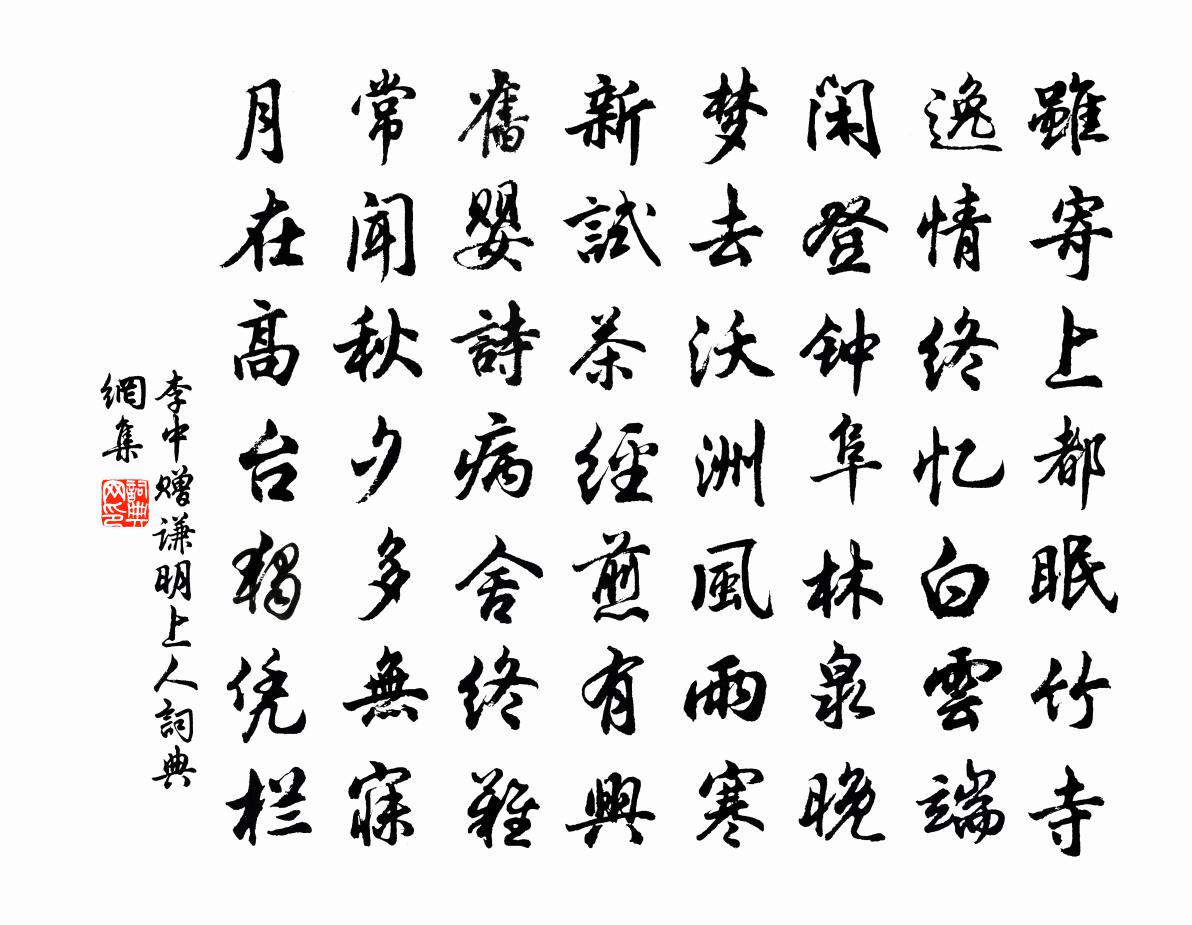 雖寄上都眠竹寺
逸情終忆白雲端
闲登钟阜林泉晚
梦去沃洲風雨寒
新試茶經煎有興
舊嬰詩病舍終難
常闻秋夕多無寐
月在高台獨凭栏
李中 赠谦明上人 詞典
網集
詞典網印